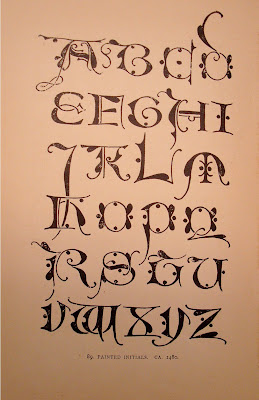 A B C D
E F G H I
J K L M
N O P Q
R S T U
V W X Y Z
89. PAINTED INITIALS. CA. 1480.